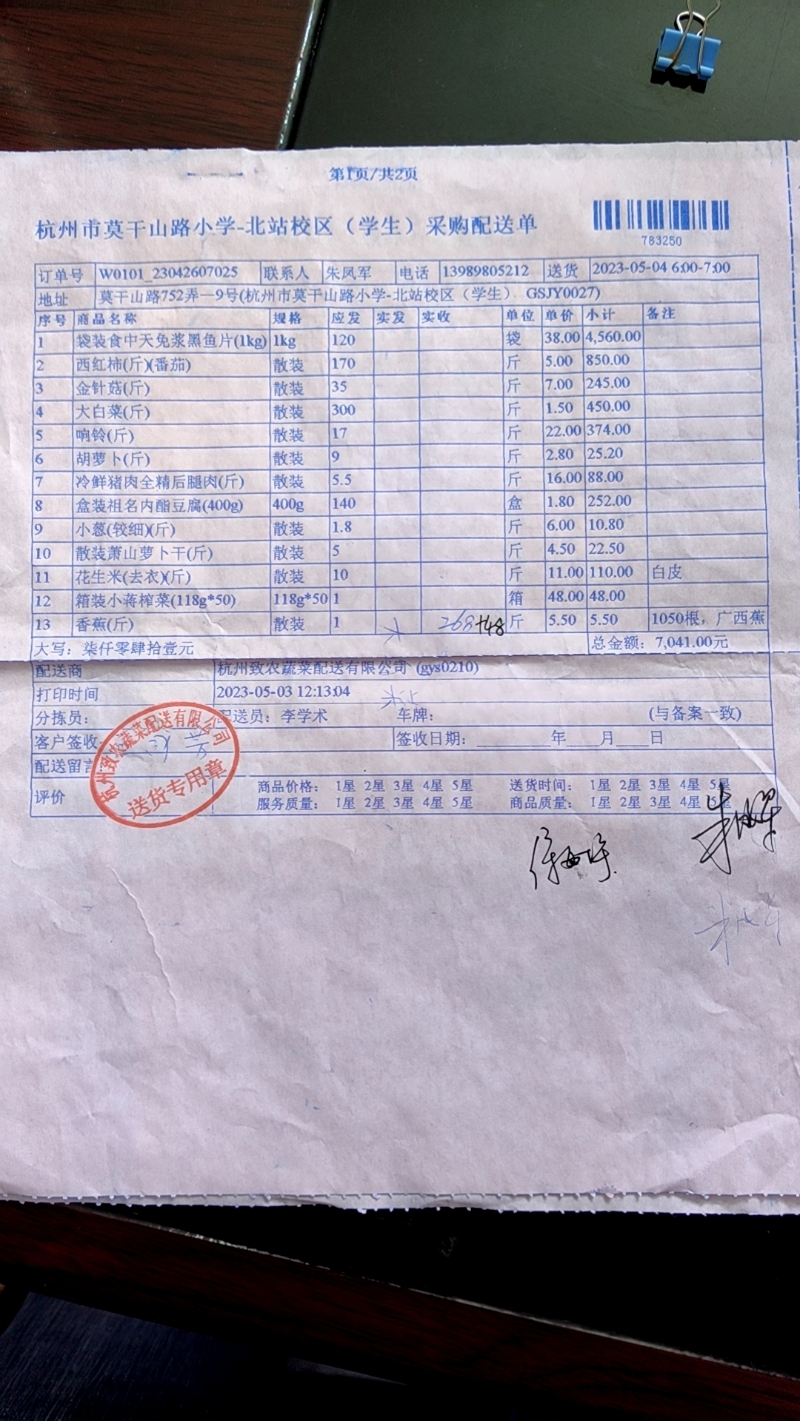 第1页/共2页
杭州市莫干山路小学-北站校区（学生）采购配送单
783250
订单号 W0101_23042607025 联系人 朱凤军 电话 13989805212 送货 2023-05-04 6:00-7:00
地址 莫干山路752弄一9号(杭州市莫干山路小学-北站校区（学生） GSJY0027)
序号 商品名称 规格 应发 实发 实收 单位 单价 小计 备注
1 袋装食中天免浆黑鱼片(1kg) 1kg 120 袋 38.00 4,560.00
2 西红柿(斤)(番茄) 散装 170 斤 5.00 850.00
3 金针菇(斤) 散装 35 斤 7.00 245.00
4 大白菜(斤) 散装 300 斤 1.50 450.00
5 响铃(斤) 散装 17 斤 22.00 374.00
6 胡萝卜(斤) 散装 9 斤 2.80 25.20
7 冷鲜猪肉全精后腿肉(斤) 散装 5.5 斤 16.00 88.00
8 盒装祖名内酯豆腐(400g) 400g 140 盒 1.80 252.00
9 小葱(较细)(斤) 散装 1.8 斤 6.00 10.80
10 散装萧山萝卜干(斤) 散装 5 斤 4.50 22.50
11 花生米(去衣)(斤) 散装 10 斤 11.00 110.00 白皮
12 箱装小蒋榨菜(118g*50) 118g*50 1 箱 48.00 48.00
13 香蕉(斤) 散装 1 268+48 斤 5.50 5.50 1050根，广西蕉
大写：柒仟零肆拾壹元 总金额：7,041.00元
配送商 杭州致农蔬菜配送有限公司 (gys0210)
打印时间 2023-05-03 12:13:04
分拣员： 配送员：李学术 车牌： (与备案一致)
客户签收 签收日期： 年 月 日
配送留言
评价 商品价格： 1星 2星 3星 4星 5星 送货时间： 1星 2星 3星 4星 5星
服务质量： 1星 2星 3星 4星 5星 商品质量： 1星 2星 3星 4星 5星
杭州致农蔬菜配送有限公司
送货专用章